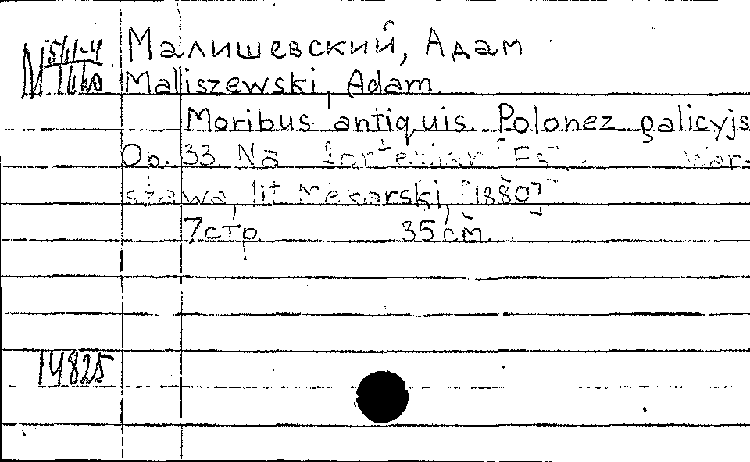 М 5/II-4
1660
Малишевский, Адам
Maliszewski, Adam.
Moribus antiquis. Polonez galicyjs
Op. 33 Na fortepian "Es". War-
szawa, lit
[1880?]
7 стр. 35 см.
14825